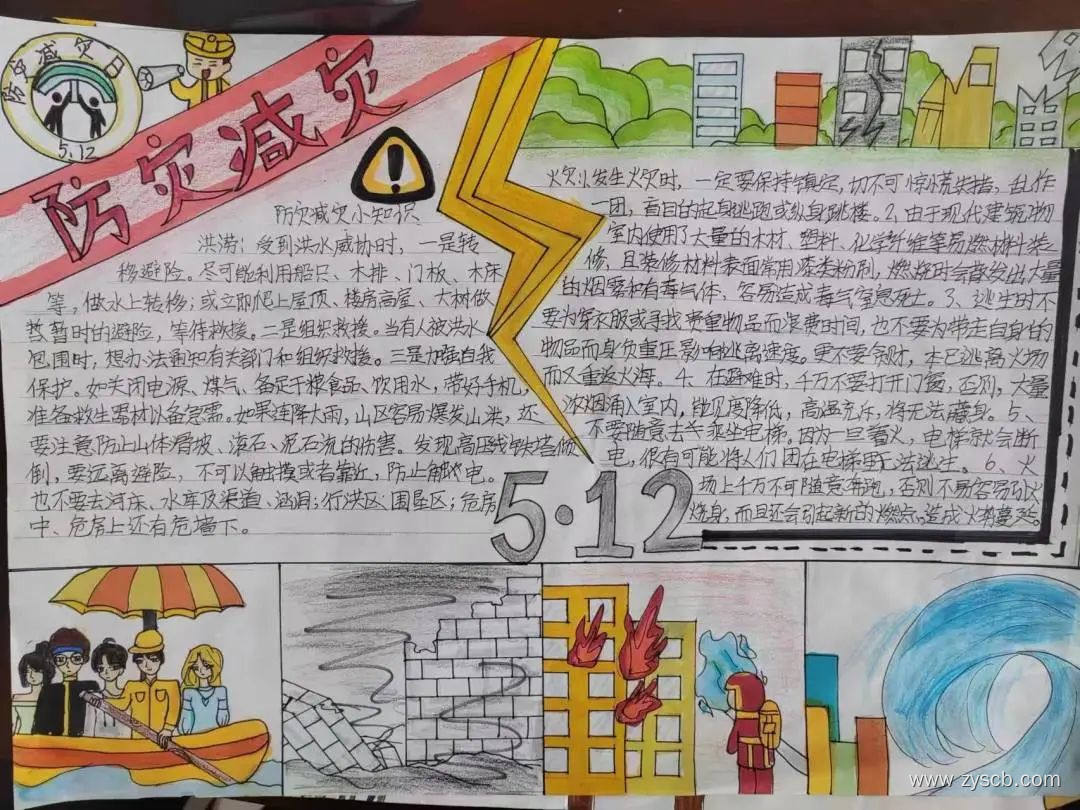 防灾减灾日
5.12
防灾减灾
防灾减灾小知识
洪涝：受到洪水威协时，一是转
移避险。尽可能利用船只、木排、门板、木床
等，做水上转移；或立即爬上屋顶、楼房高层、大树做
暂时的避险，等待救援。二是组织救援。当有人被洪水
包围时，想办法通知有关部门和组织救援。三是加强自我
保护。如关闭电源、煤气、备足干粮食品、饮用水，带好手机，
准备救生器材以备急需。如果连降大雨，山区容易爆发山洪，还
要注意防止山体滑坡、滚石、泥石流的伤害。发现高压线铁塔倾
倒，要远离避险，不可以触摸或者靠近，防止触电。
也不要去河床、水库及渠道、涵洞；行洪区；围垦区；危房
中、危房上还有危墙下。
火灾：1、发生火灾时，一定要保持镇定，切不可惊慌失措，乱作
一团，盲目的起身逃跑或纵身跳楼。2、由于现代建筑物
室内使用了大量的木材、塑料、化学纤维等易燃材料装
修，且装修材料表面常用漆类粉刷，燃烧时会散发出大量
的烟雾和有毒气体，容易造成毒气窒息死亡。3、逃生时不
要为穿衣服或寻找贵重物品而浪费时间，也不要为带走自身的
物品而身负重压影响逃离速度。更不要贪财，本已逃离火场
而又重返火海。4、在避难时，千万不要打开门窗，否则，大量
浓烟涌入室内，能见度降低，高温充斥，将无法藏身。5、
不要随意去乘坐电梯。因为一旦着火，电梯就会断
电，很有可能将人们困在电梯里无法逃生。6、火
场上千万不可随意奔跑，否则不易容易引火
烧身，而且还会引起新的燃点，造成火势蔓延。
5·12
www.zyscb.com